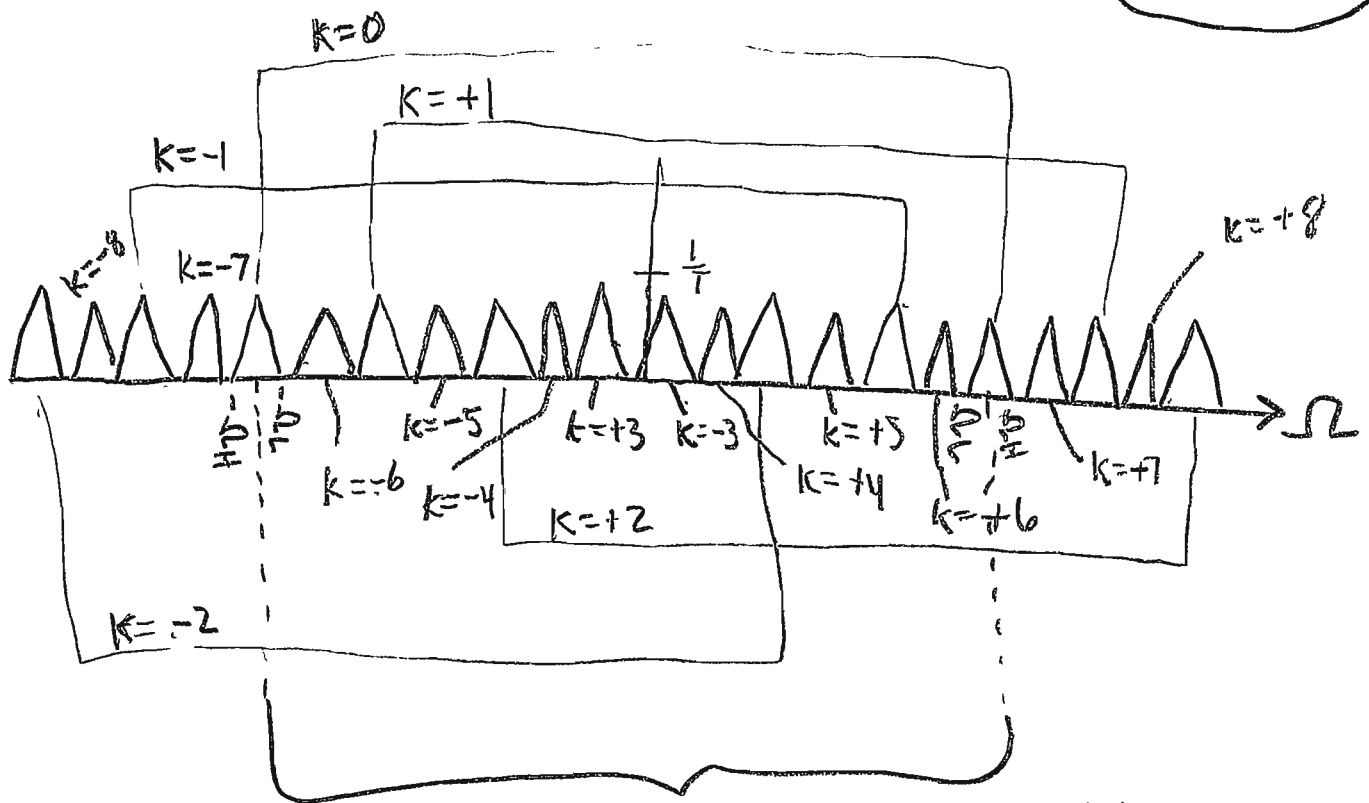 k=0
k=+1
k=-1
k=-8
k=-7
k=+8
1/T
Ω
k=-6
k=-5
k=-4
k=+3
k=-3
k=+4
k=+5
k=+6
k=+7
k=+2
k=-2